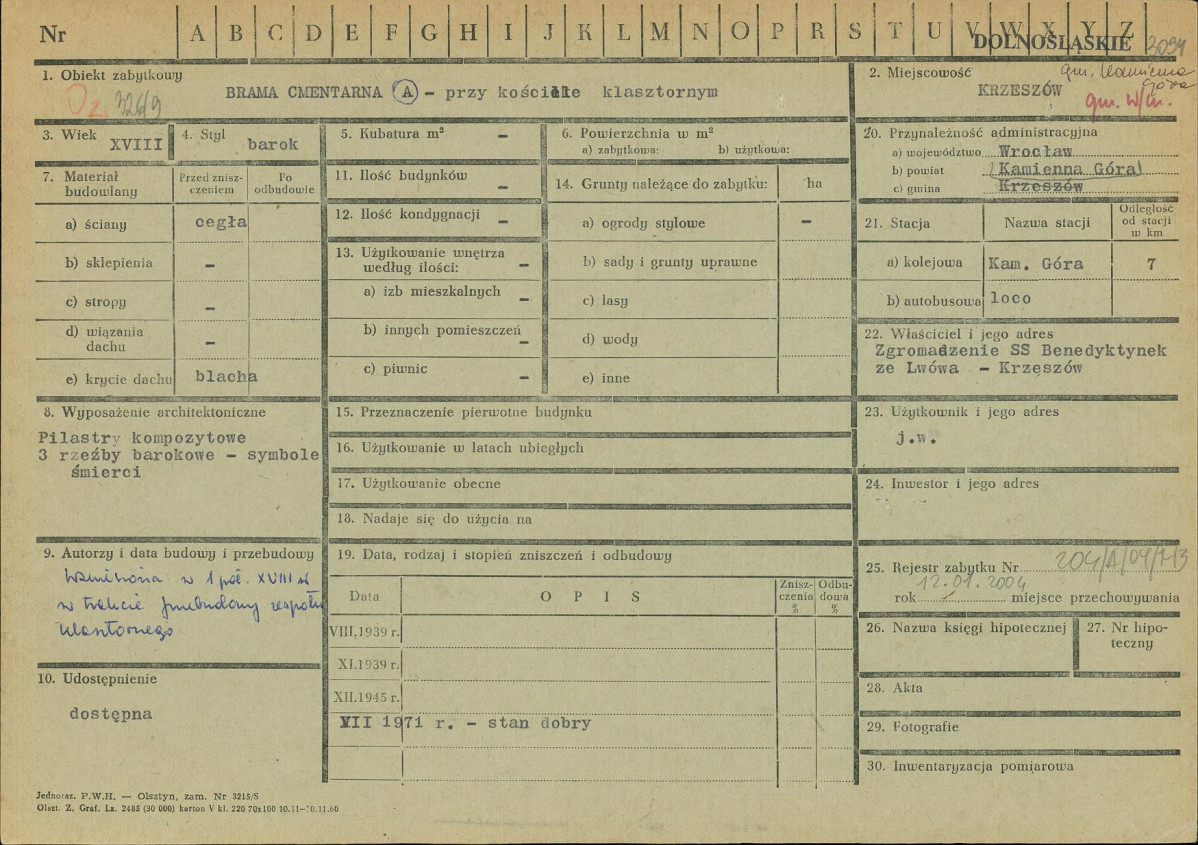 Nr A B C D E F G H I J K L M N O P R S T U V W X Y Z
DOLNOŚLĄSKIE 2034
1. Obiekt zabytkowy
326/9
BRAMA CMENTARNA (A) – przy kościele klasztornym
2. Miejscowość gm. Kamienna Góra
KRZESZÓW
gm. w/m.
3. Wiek XVIII
4. Styl barok
5. Kubatura m³ –
6. Powierzchnia w m²
a) zabytkowa: b) użytkowa:
20. Przynależność administracyjna
a) województwo Wrocław
b) powiat Kamienna Góra
c) gmina Krzeszów
7. Materiał budowlany
Przed znisz-
czeniem
Po
odbudowie
a) ściany cegła
b) sklepienia –
c) stropy –
d) wiązania
dachu –
e) krycie dachu blacha
11. Ilość budynków –
12. Ilość kondygnacji –
13. Użytkowanie wnętrza
według ilości: –
a) izb mieszkalnych –
b) innych pomieszczeń –
c) piwnic –
14. Grunty należące do zabytku: ha
a) ogrody stylowe –
b) sady i grunty uprawne
c) lasy
d) wody
e) inne
21. Stacja Nazwa stacji Odległość
od stacji
w km
a) kolejowa Kam. Góra 7
b) autobusowa loco
22. Właściciel i jego adres
Zgromadzenie SS Benedyktynek
ze Lwówa – Krzeszów
8. Wyposażenie architektoniczne
Pilastry kompozytowe
3 rzeźby barokowe – symbole
śmierci
15. Przeznaczenie pierwotne budynku
16. Użytkowanie w latach ubiegłych
17. Użytkowanie obecne
18. Nadaje się do użycia na
23. Użytkownik i jego adres
j.w.
24. Inwestor i jego adres
9. Autorzy i data budowy i przebudowy
Wzniesiona w 1 poł. XVIII w
w trakcie przebudowy zespołu
klasztornego
19. Data, rodzaj i stopień zniszczeń i odbudowy
Data O P I S Znisz-
czenia
% Odbu-
dowa
%
VIII.1939 r.
XI.1939 r.
XII.1945 r.
VII 1971 r. – stan dobry
25. Rejestr zabytku Nr 204/A/04/1-3
12.01.2004
rok miejsce przechowywania
26. Nazwa księgi hipotecznej
27. Nr hipo-
teczny
10. Udostępnienie
dostępna
28. Akta
29. Fotografie
30. Inwentaryzacja pomiarowa
Jednoraz. P.W.H. — Olsztyn, zam. Nr 3215/S
Olszt. Z. Graf. Lz. 2485 (30 000) karton V kl. 220 70x100 10.11–10.11.60